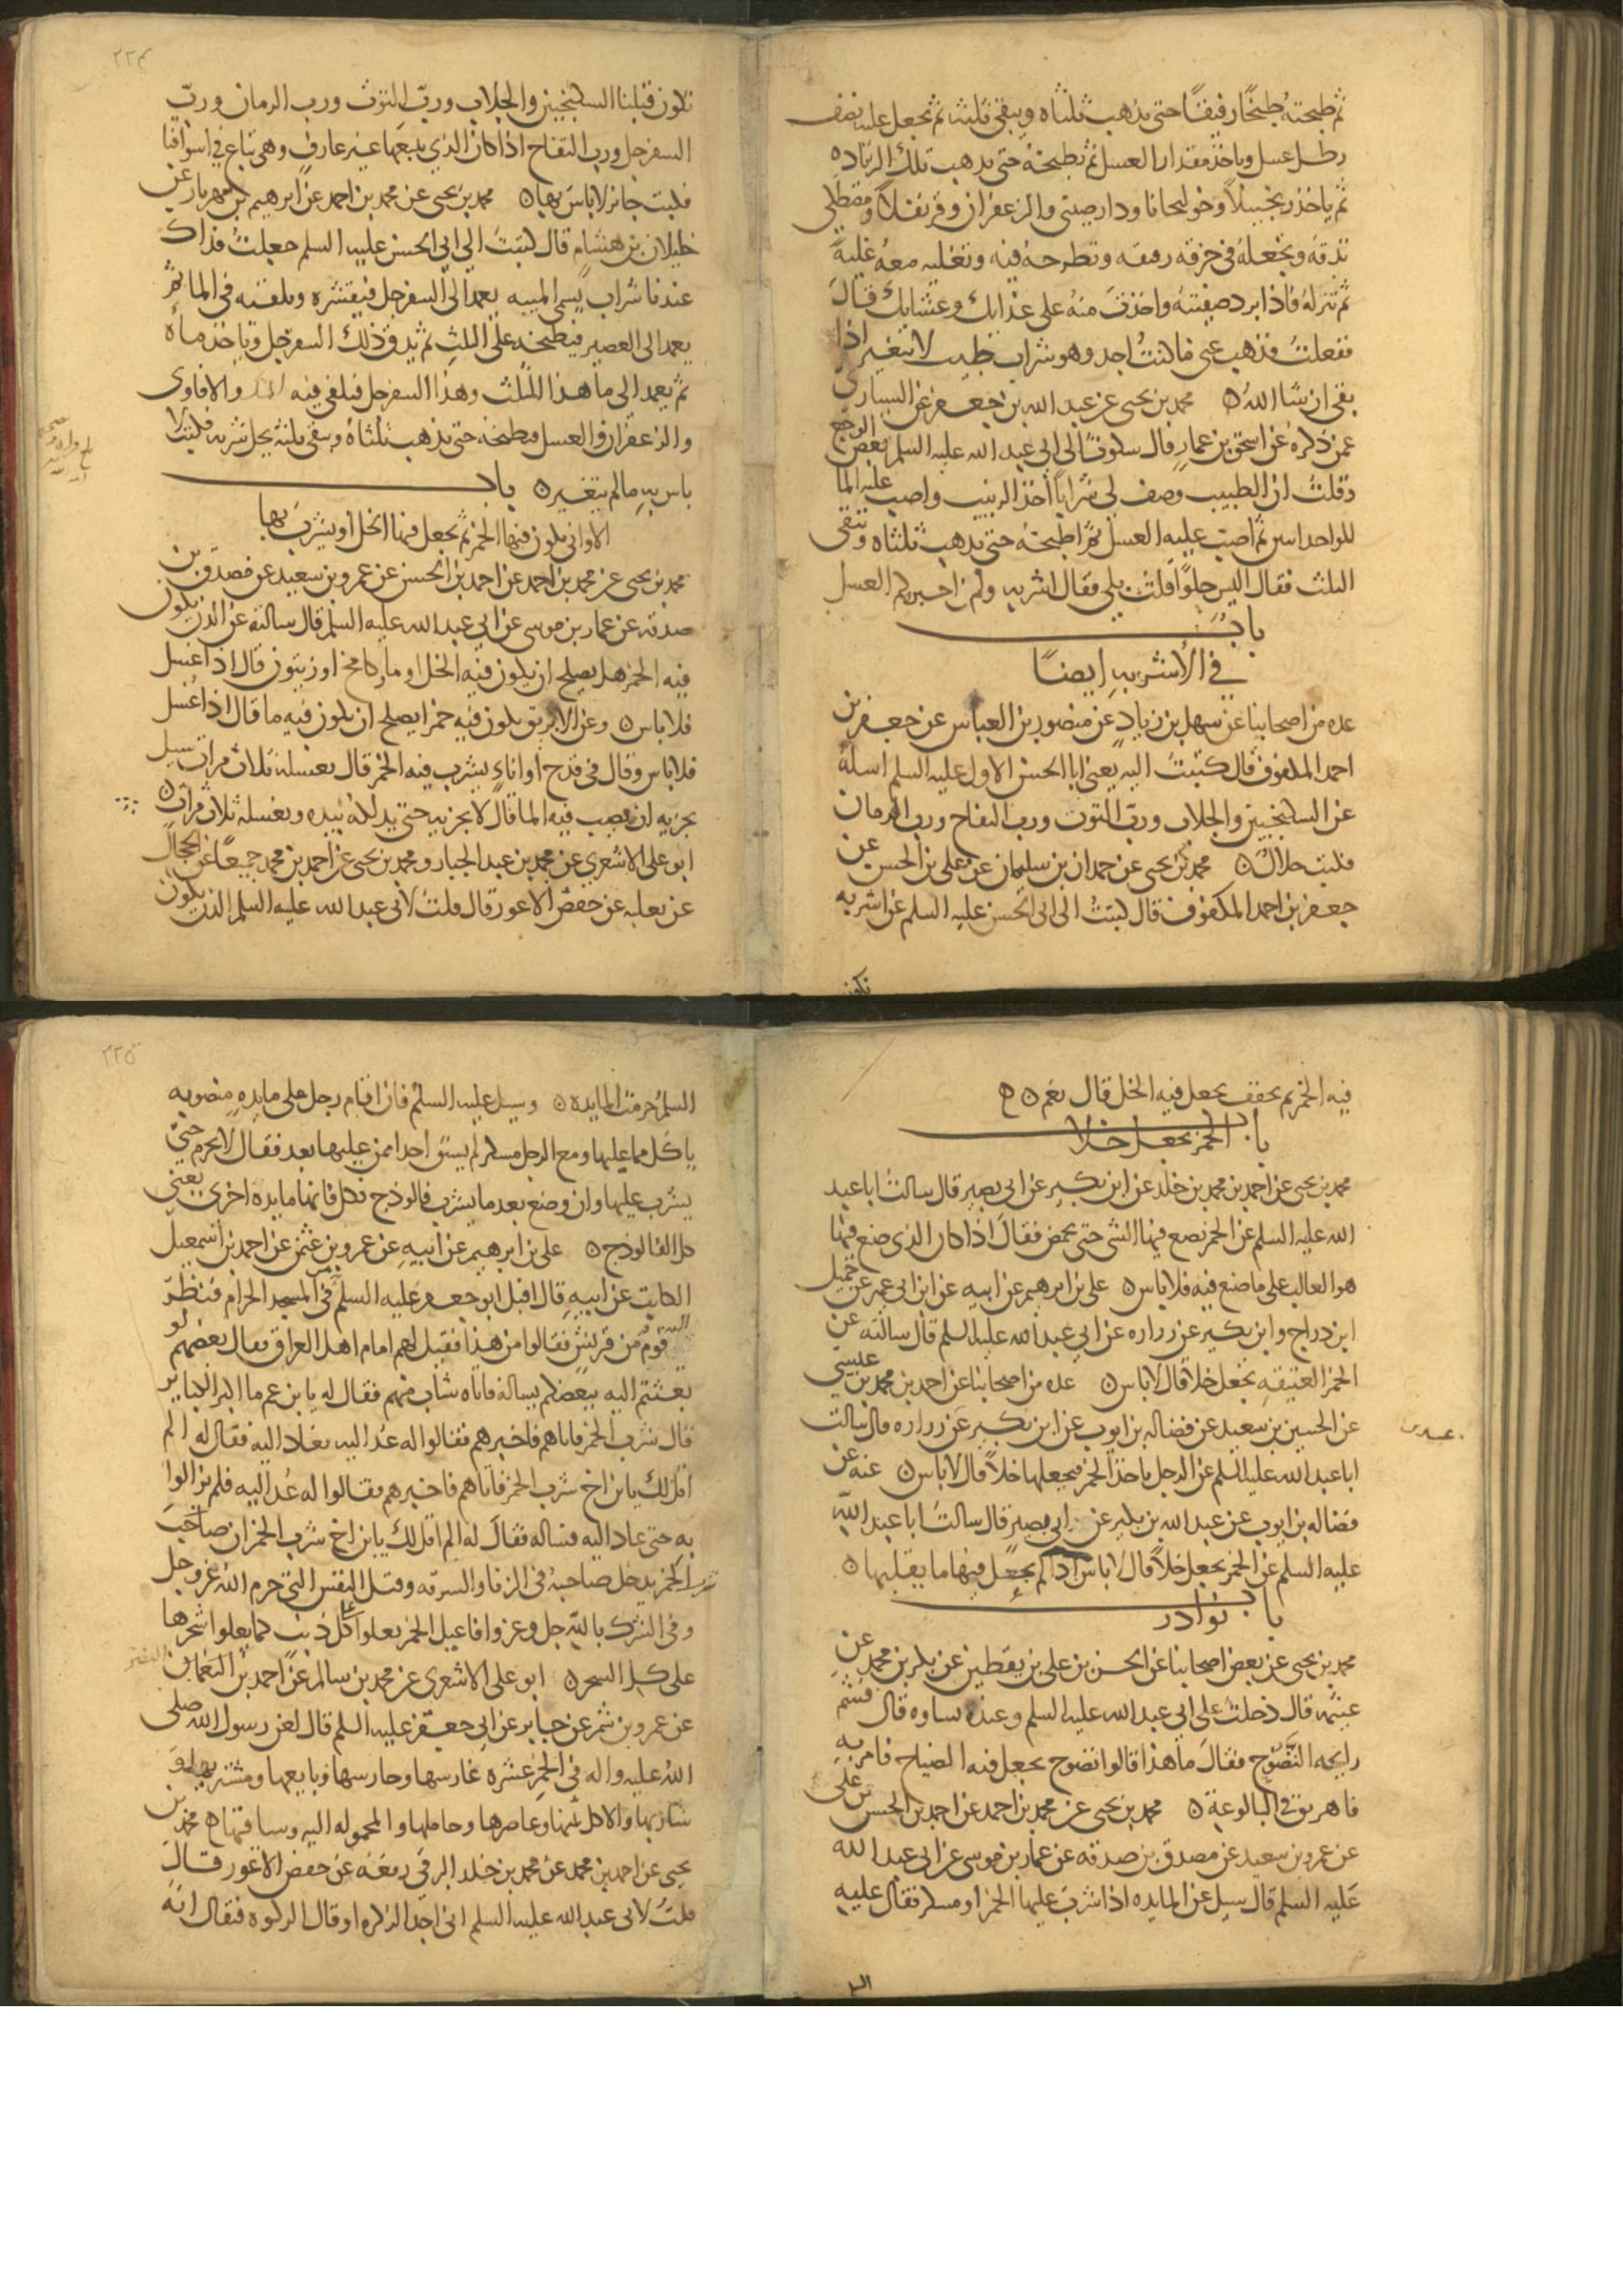 ثم طبخته طبخا رفيقا حتى يذهب ثلثاه ويبقى ثلثه ثم تجعل عليه نصف
رطل عسل وياخذ مقدار العسل ثم تطبخه حتى يذهب تلك الزياده
ثم ياخذ زنجبيلا وخولنجانا ودارصيني والزعفران وقرنفلا ومصطكى
تدقه وتجعله في خرقه رقيقه وتطرحه فيه وتغليه معه غلية
ثم تنزله فاذا برد صفيته واخذت منه على غدايك وعشايك قال
ففعلت فذهب عني ما كنت اجد وهو شراب طيب لا يتغير اذا
بقي ان شا الله ه محمد بن يحيى عن عبد الله بن جعفر عن السياري
عمن ذكره عن اسحق بن عمار قال شكوت الى ابي عبد الله عليه السلم بعض الوجع
وقلت ان الطبيب وصف لي شرابا اخذ الزبيب واصب عليه الما
للواحد اثنين ثم اصب عليه العسل ثم اطبخه حتى يذهب ثلثاه وتبقى
الثلث فقال اليس حلوا قلت بلى فقال اشربه ولم اخبره كم العسل
باب
في الاشربه ايضا
عده من اصحابنا عن سهل بن زياد عن منصور بن العباس عن جعفر بن
احمد المكفوف قال كتبت اليه يعني ابا الحسن الاول عليه السلم اسله
عن السكنجبين والجلاب ورب التوت ورب التفاح ورب الرمان
فكتب حلال ه محمد بن يحيى عن حمدان بن سليمان عن علي بن الحسن عن
جعفر بن احمد المكفوف قال كتبت الى ابي الحسن عليه السلم عن اشربه
تكون
٢٢٤
تكون قبلنا السكنجبين والجلاب ورب التوت ورب الرمان ورب
السفرجل ورب التفاح اذا كان الذي يبيعها غير عارف وهي تباع في اسواقنا
فكتب جائز لا باس بها ه محمد بن يحيى عن محمد بن احمد عن ابرهيم بن مهزيار عن
خليلان بن هشام قال كتبت الى ابي الحسن عليه السلم جعلت فداك
عندنا شراب يسمى الميبه يعمد الى السفرجل فيقشره ويلقيه في الما ثم
يعمد الى العصير فيطبخه على الثلث ثم يدق ذلك السفرجل وياخذ ماه
ثم يعمد الى ما هذا المثلث وهذا السفرجل فيلقى فيه والافاوى
والزعفران والعسل فيطبخه حتى يذهب ثلثاه ويبقى ثلثه يحل شربه فكتب لا
باس به ما لم يتغير ه باب
الاواني يكون فيها الخمر ثم يجعل فيها الخل او يشرب بها
محمد بن يحيى عن محمد بن احمد عن احمد بن الحسن عن عمرو بن سعيد عن مصدق بن
صدقه عن عمار بن موسى عن ابي عبد الله عليه السلم قال سالته عن الدن يكون
فيه الخمر هل يصلح ان يكون فيه الخل او ما او كامخ او زيتون قال اذا غسل
فلا باس ه وعن الابريق يكون فيه خمر ايصلح ان يكون فيه ما قال اذا غسل
فلا باس وقال في قدح او اناء يشرب فيه الخمر قال تغسله ثلاث مرات سيل
يجزيه ان يصب فيه الما قال لا يجزيه حتى يدلكه بيده ويغسله ثلاث مرات ه
ابو علي الاشعري عن محمد بن عبد الجبار ومحمد بن يحيى عن احمد بن محمد جميعا عن الحجال
عن ثعلبه عن حفص الاعور قال قلت لابي عبد الله عليه السلم الدن يكون
فيه الخمر ثم يجفف يجعل فيه الخل قال نعم ه ه
باب الخمر يجعل خلا
محمد بن يحيى عن احمد بن محمد بن خلد عن ابن بكير عن ابي بصير قال سالت ابا عبد
الله عليه السلم عن الخمر تصع فيها الشي حتى تحمض فقال اذا كان الذي صنع فيها
هو الغالب على ما صنع فيه فلا باس ه علي بن ابرهيم عن ابيه عن ابن ابي عمير عن جميل
ابن دراج وابن بكير عن زراره عن ابي عبد الله عليه السلم قال سالته عن
الخمر العتيقه تجعل خلا قال لا باس ه عده من اصحابنا عن احمد بن محمد بن عيسى
عن الحسين بن سعيد عن فضاله بن ايوب عن ابن بكير عن زراره قال سالت
ابا عبد الله عليه السلم عن الرجل ياخذ الخمر فيجعلها خلا قال لا باس ه عنه عن
فضاله بن ايوب عن عبد الله بن بكير عن ابي بصير قال سالت ابا عبد الله
عليه السلم عن الخمر يجعل خلا قال لا باس اذا لم يجعل فيها ما يقلبها ه
باب نوادر
محمد بن يحيى عن بعض اصحابنا عن الحسن بن علي بن يقطين عن بكر بن محمد عن
عيثمه قال دخلت على ابي عبد الله عليه السلم وعنده نساوه قال فشم
رايحه النضوح فقال ما هذا قالوا نضوح يجعل فيه الضياح فامر به
فاهريق في البالوعة ه محمد بن يحيى عن محمد بن احمد عن احمد بن الحسن بن علي
عن عمرو بن سعيد عن مصدق بن صدقه عن عمار بن موسى عن ابي عبد الله
عليه السلم قال سيل عن المايده اذا شرب عليها الخمر او مسكر فقال عليه
السل
٢٢٥
السلم حرمت المايده ه وسيل عليه السلم فان اقام رجل على مايده منصوبه
ياكل مما عليها ومع الرجل مسكر لم يسق احدا ممن عليها بعد فقال لا يحرم حتى
يشرب عليها وان وضع بعد ما يشرب فالوذج فكل فانها مايده اخرى يعني
كل الفالوذج ه علي بن ابرهيم عن ابيه عن عمرو بن عثمن عن احمد بن اسمعيل
الكاتب عن ابيه قال اقبل ابو جعفر عليه السلم في المسجد الحرام فنظر
اليه قوم من قريش فقالوا من هذا فقيل لهم امام اهل العراق فقال بعضهم لو
بعثتم اليه ببعضكم يساله فاتاه شاب منهم فقال له يا بن عم ما اكبر الكباير
قال شرب الخمر فاتاهم فاخبرهم فقالوا له عد اليه فعاد اليه فقال له الم
اقل لك يا بن اخ شرب الخمر فاتاهم فاخبرهم فقالوا له عد اليه فلم يزالوا
به حتى عاد اليه فساله فقال له الم اقل لك يا بن اخ شرب الخمر ان صاحب
شرب الخمر يدخل صاحبه في الزنا والسرقه وقتل النفس التي حرم الله عز وجل
وفي الشرك بالله جل وعز وافاعيل الخمر تعلوا كل ذنب كما يعلوا شجرها
على كل الشجر ه ابو علي الاشعري عن محمد بن سالم عن احمد بن النضر
عن عمرو بن شمر عن جابر عن ابي جعفر عليه السلم قال لعن رسول الله صلى
الله عليه واله في الخمر عشره غارسها وحارسها وبايعها ومشتريها و
شاربها والاكل ثمنها وعاصرها وحاملها والمحموله اليه وساقيها ه محمد بن
يحيى عن احمد بن محمد عن محمد بن خلد البرقي رفعه عن حفص الاعور قال
قلت لابي عبد الله عليه السلم اني اجد الزكره او قال الركوه فقال انه